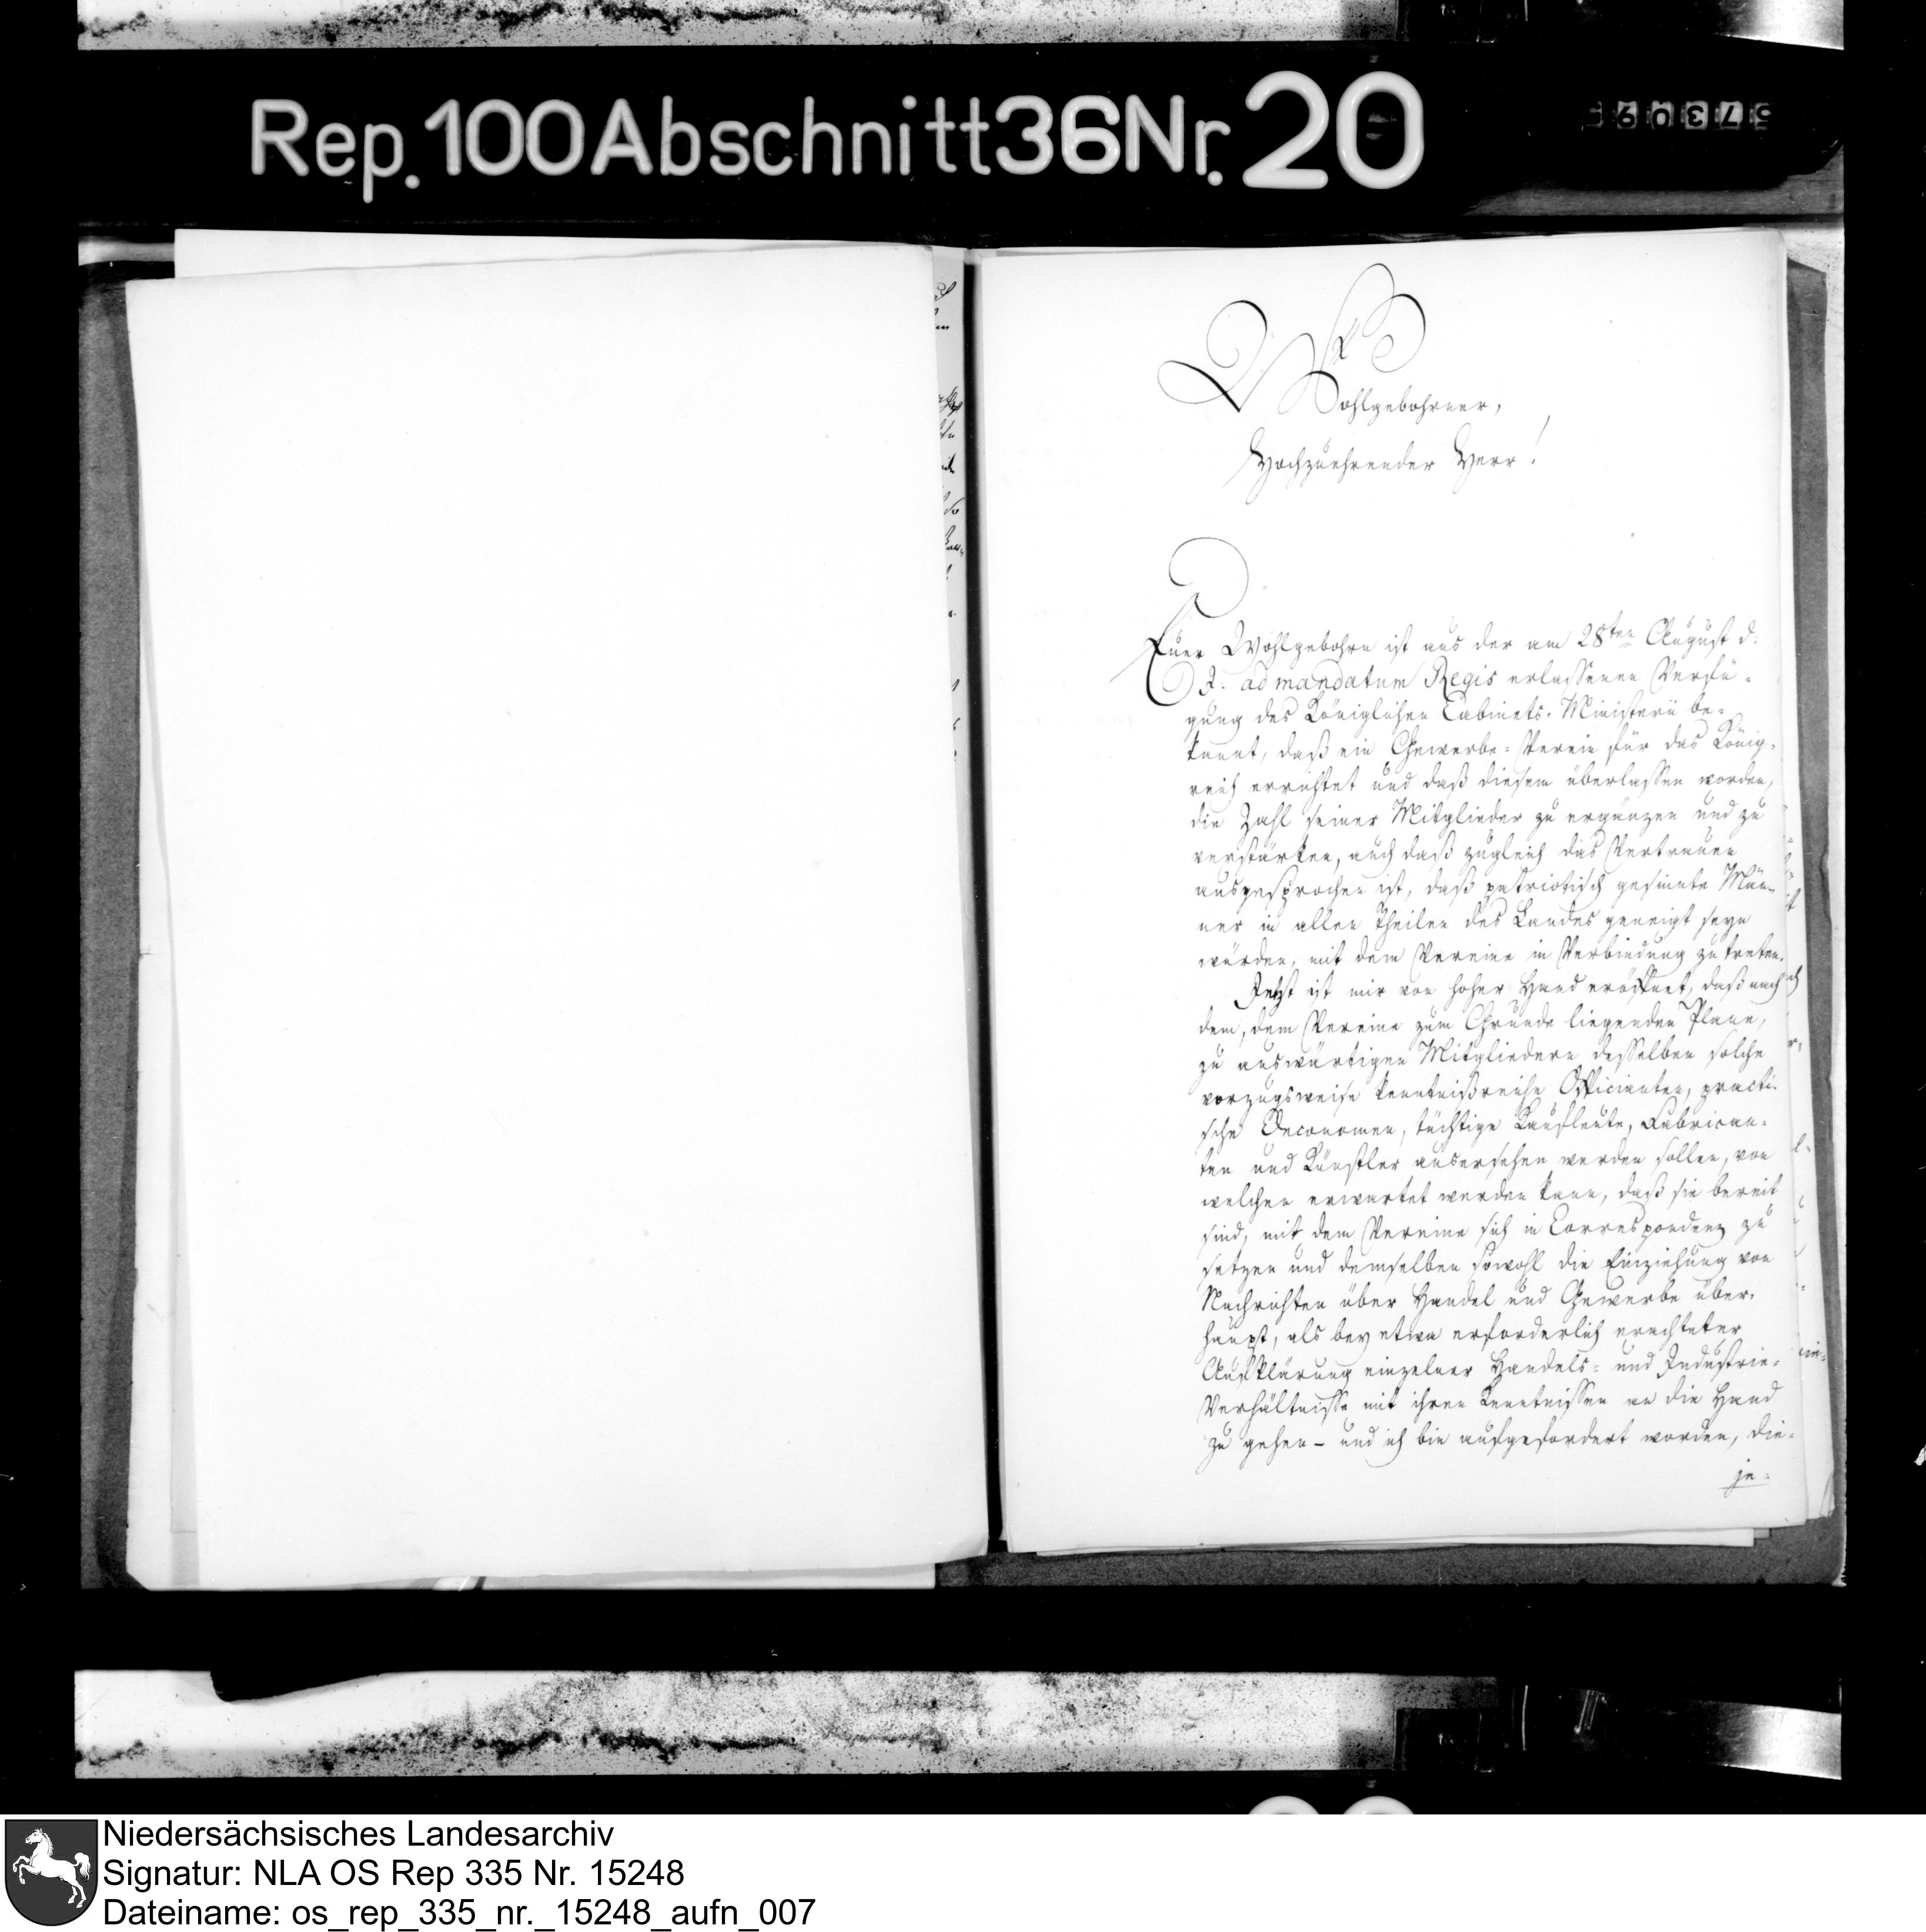 Rep. 100 Abschnitt 36 Nr. 20
Wohlgebohrner,
Hochzuehrender Herr!
Euer Wohlgebohrn ist aus der am 28ten August d.
J. ad mandatum Regis erlassenen Verfü-
gung des Königlichen Cabinets-Ministerii be-
kannt, daß ein Gewerbe-Verein für das König-
reich errichtet und daß diesem überlassen worden,
die Zahl seiner Mitglieder zu ergänzen und zu
verstärken, auch daß zugleich das Vertrauen
ausgesprochen ist, daß patriotisch gesinnte Män-
ner in allen Theilen des Landes geneigt seyn
würden, mit dem Vereine in Verbindung zu treten.
Jetzt ist mir von hoher Hand eröffnet, daß nach
dem, dem Vereine zum Grunde liegenden Plane,
zu auswärtigen Mitgliedern desselben solche
vorzugsweise kenntnißreiche Officianten, practi-
sche Oeconomen, tüchtige Kaufleute, Fabrican-
ten und Künstler ausersehen werden sollen, von
welchen erwartet werden kann, daß sie bereit
sind, mit dem Vereine sich in Correspondenz zu
setzen und demselben sowohl die Einziehung von
Nachrichten über Handel und Gewerbe über-
haupt, als bey etwa erforderlich erachteter
Aufklärung einzelner Handels- und Industrie-
Verhältnisse mit ihren Kenntnissen an die Hand
zu gehen – und ich bin aufgefordert worden, die-
je-
Niedersächsisches Landesarchiv
Signatur: NLA OS Rep 335 Nr. 15248
Dateiname: os_rep_335_nr._15248_aufn_007